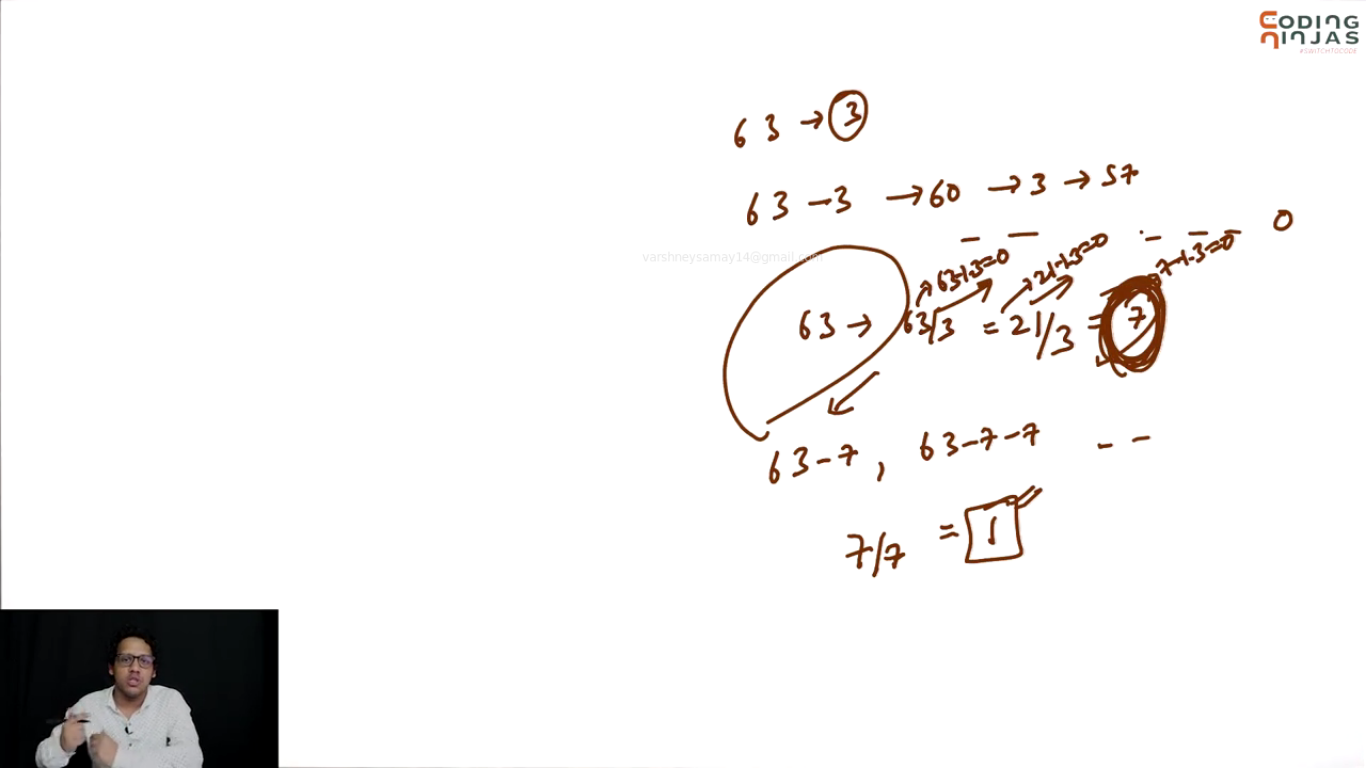 CODING
NINJAS
#SWITCHTOCODE
63 → 3
63 - 3 → 60 → 3 → 57
_ _ _ _ _ 0
varshneysamay14@gmail.com
63 % 3 = 0 21 % 3 = 0 7 % 3 = 0
63 → 63/3 = 21/3 = 7
63 - 7 , 63 - 7 - 7 - -
7/7 = 1